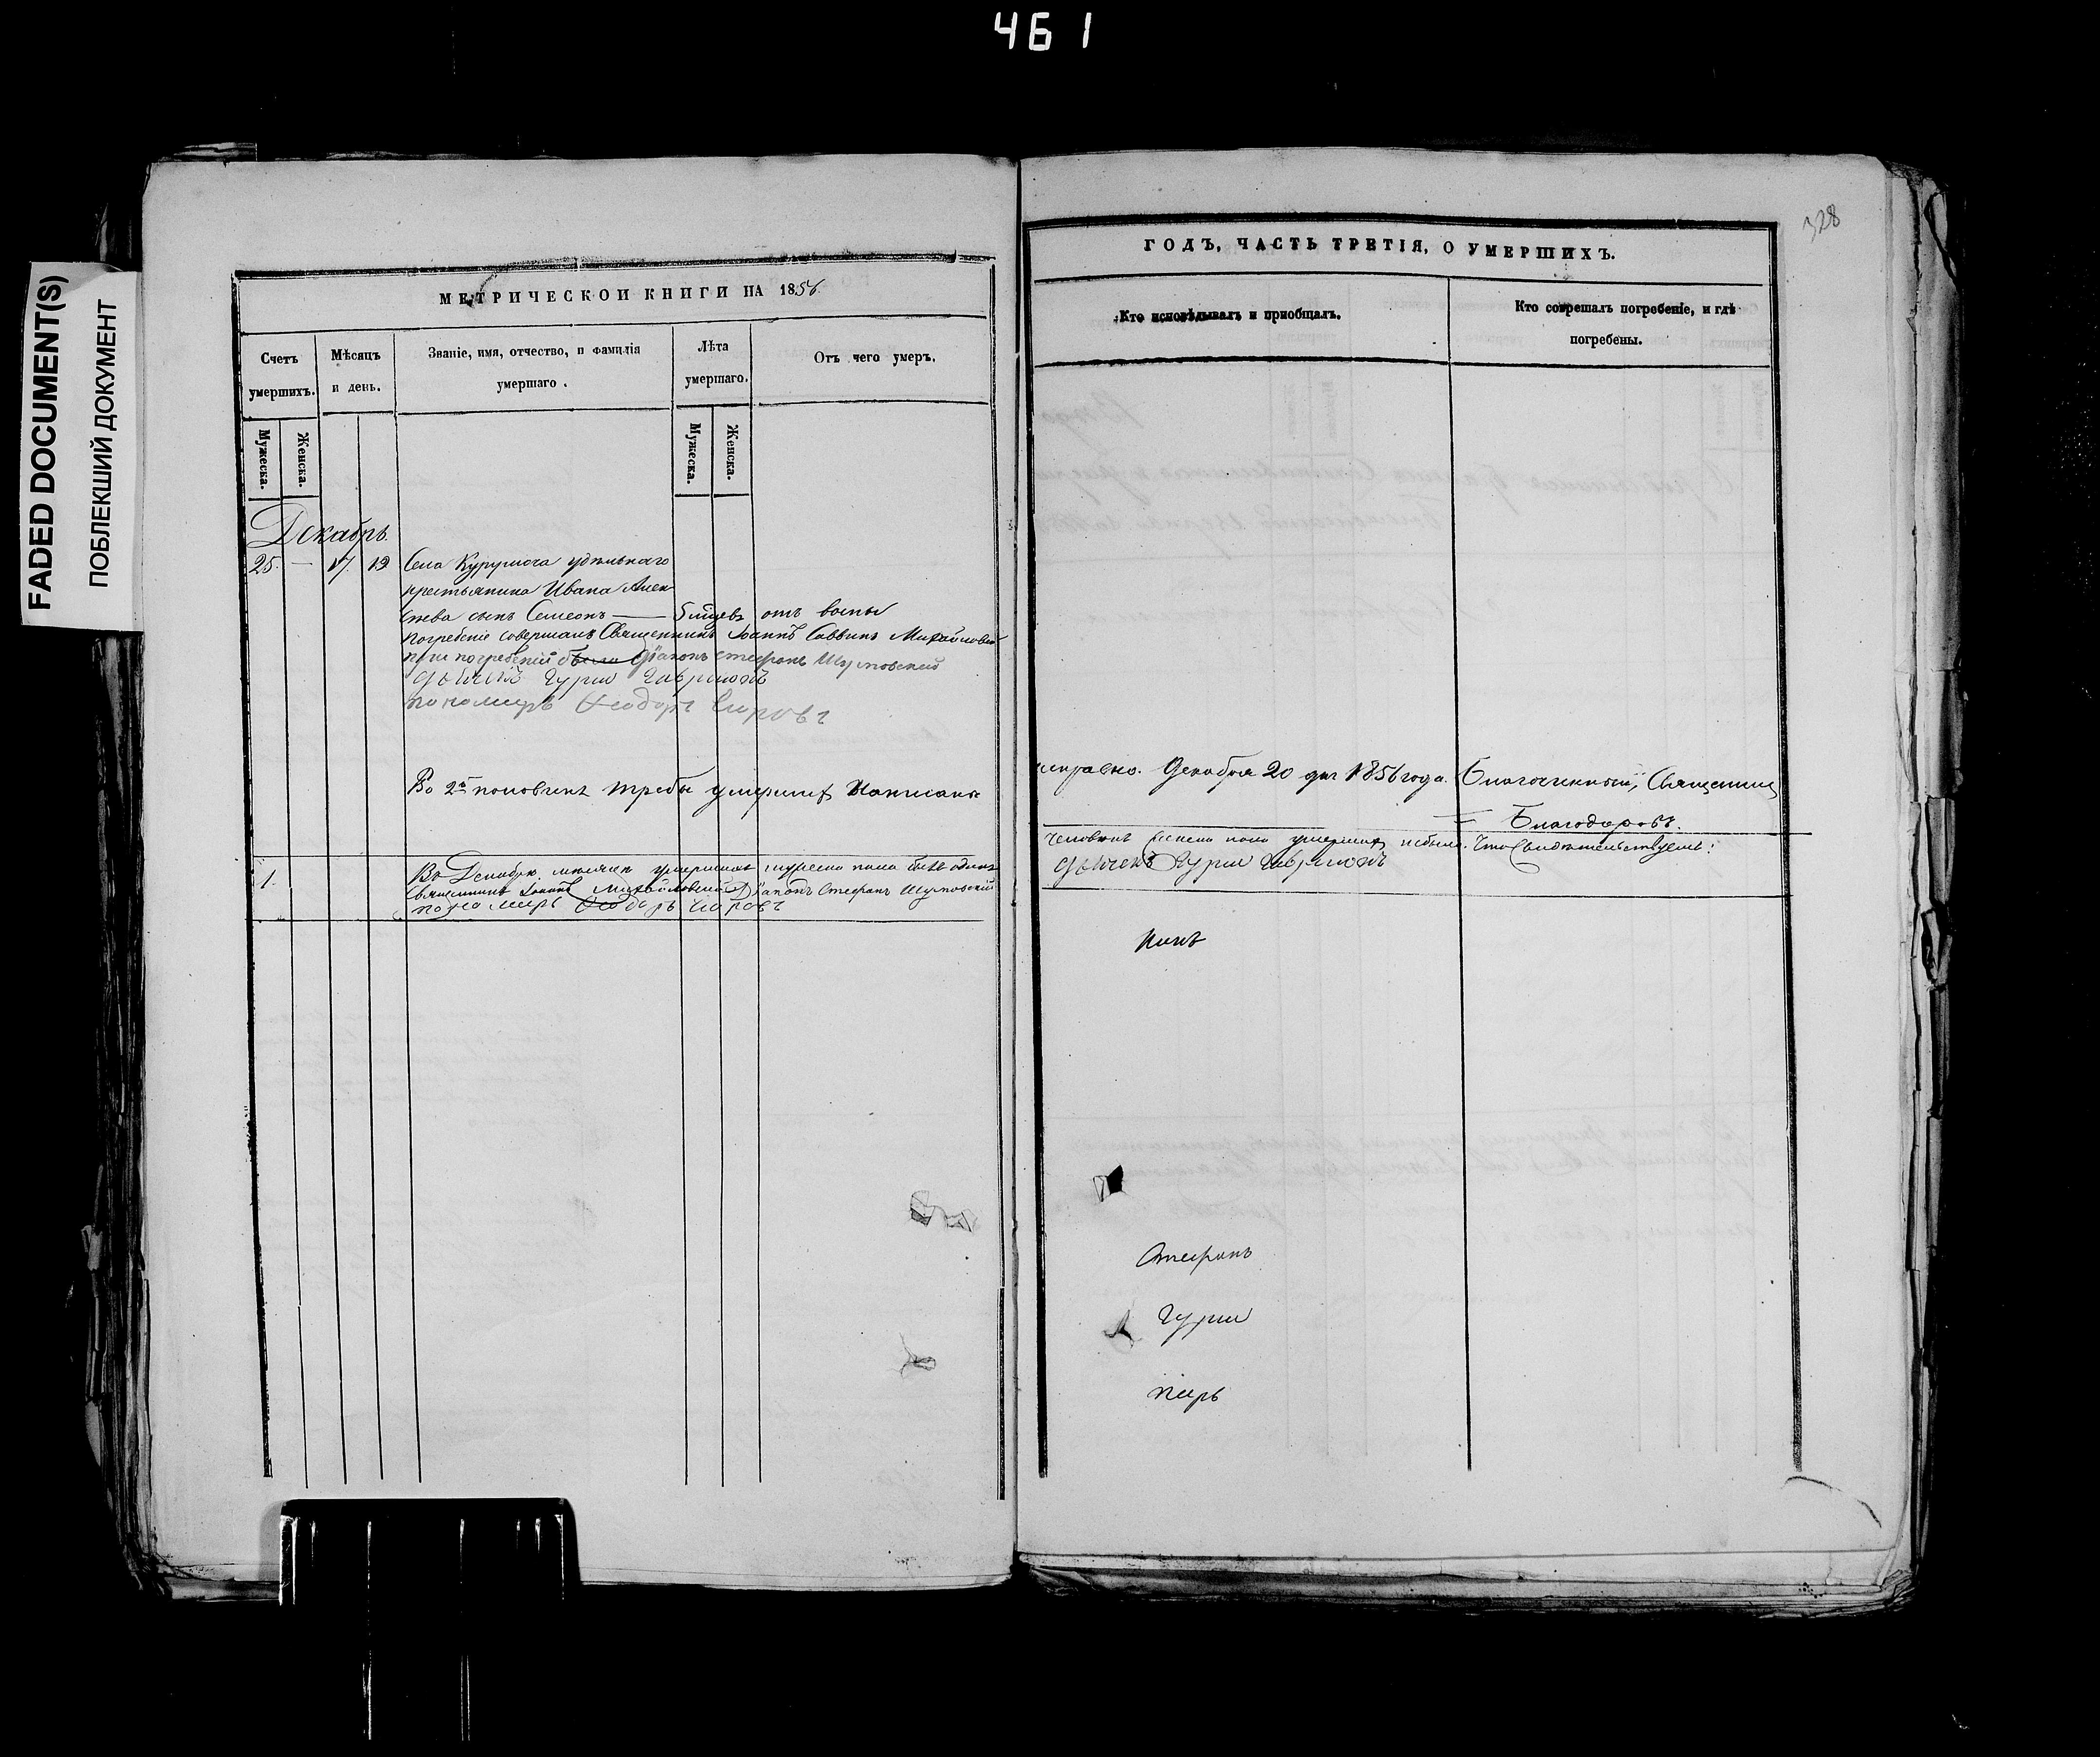 461
FADED DOCUMENT(S)
ПОБЛЕКШИЙ ДОКУМЕНТ
МЕТРИЧЕСКОЙ КНИГИ НА 1856.
Счетъ умершихъ.
Мѣсяцъ и день.
Званіе, имя, отчество, и фамилія умершаго.
Лѣта умершаго.
Отъ чего умеръ.
Мужеска.
Женска.
Мужеска.
Женска.
Декабрь.
25. — 17. 19 Села Курумоча удѣльнаго
крестьянина Ивана Алек
сѣева сынъ Симеонъ — отъ воспы
погребеніе совершалъ Священникъ Іоаннъ Саввинъ Михайловскій
при погребеніи были Діаконъ Стефанъ Шумовскій
дьячекъ Гурій
пономарь Ѳеодоръ
Во 2й половинѣ требы умершихъ Написаны
1. Въ Декабрѣ мѣсяцѣ умершихъ мужеска пола былъ одинъ
Священникъ Іоаннъ Михайловскій Діаконъ Стефанъ Шумовскій
пономарь Ѳеодоръ
328
ГОДЪ, ЧАСТЬ ТРЕТІЯ, О УМЕРШИХЪ.
Кто исповѣдывалъ и пріобщалъ.
Кто совершалъ погребеніе, и гдѣ погребены.
исправно. Декабря 20 дня 1856 года. Благочинный, Священникъ
Благодаровъ.
человѣкъ женска пола умершихъ небыло. Что свидѣтельствуемъ:
дьячекъ Гурій
никъ
Стефанъ
Гурій
марь